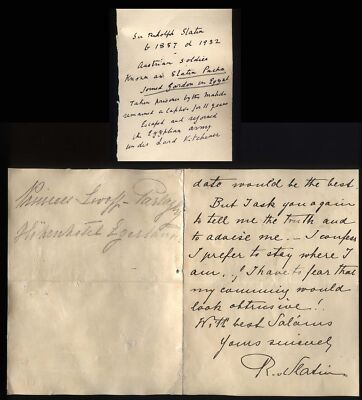 Sir Rudolph Slatin
b 1857 d 1932
Austrian Soldier
Known as Slatin Pacha
Joined Gordon in Egypt
Taken prisoner by the Mahdi
remained a captive for 11 years
Escaped and rejoined
the Egyptian army
under Lord Kitchener
Princess
date would be the best.
But I ask you again
to tell me the truth and
to advise me. – I confess
I prefer to stay where I
am. , I have to fear that
my comming would
look obtrusive!.
With best Salams
Yours sincerely
R. Slatin